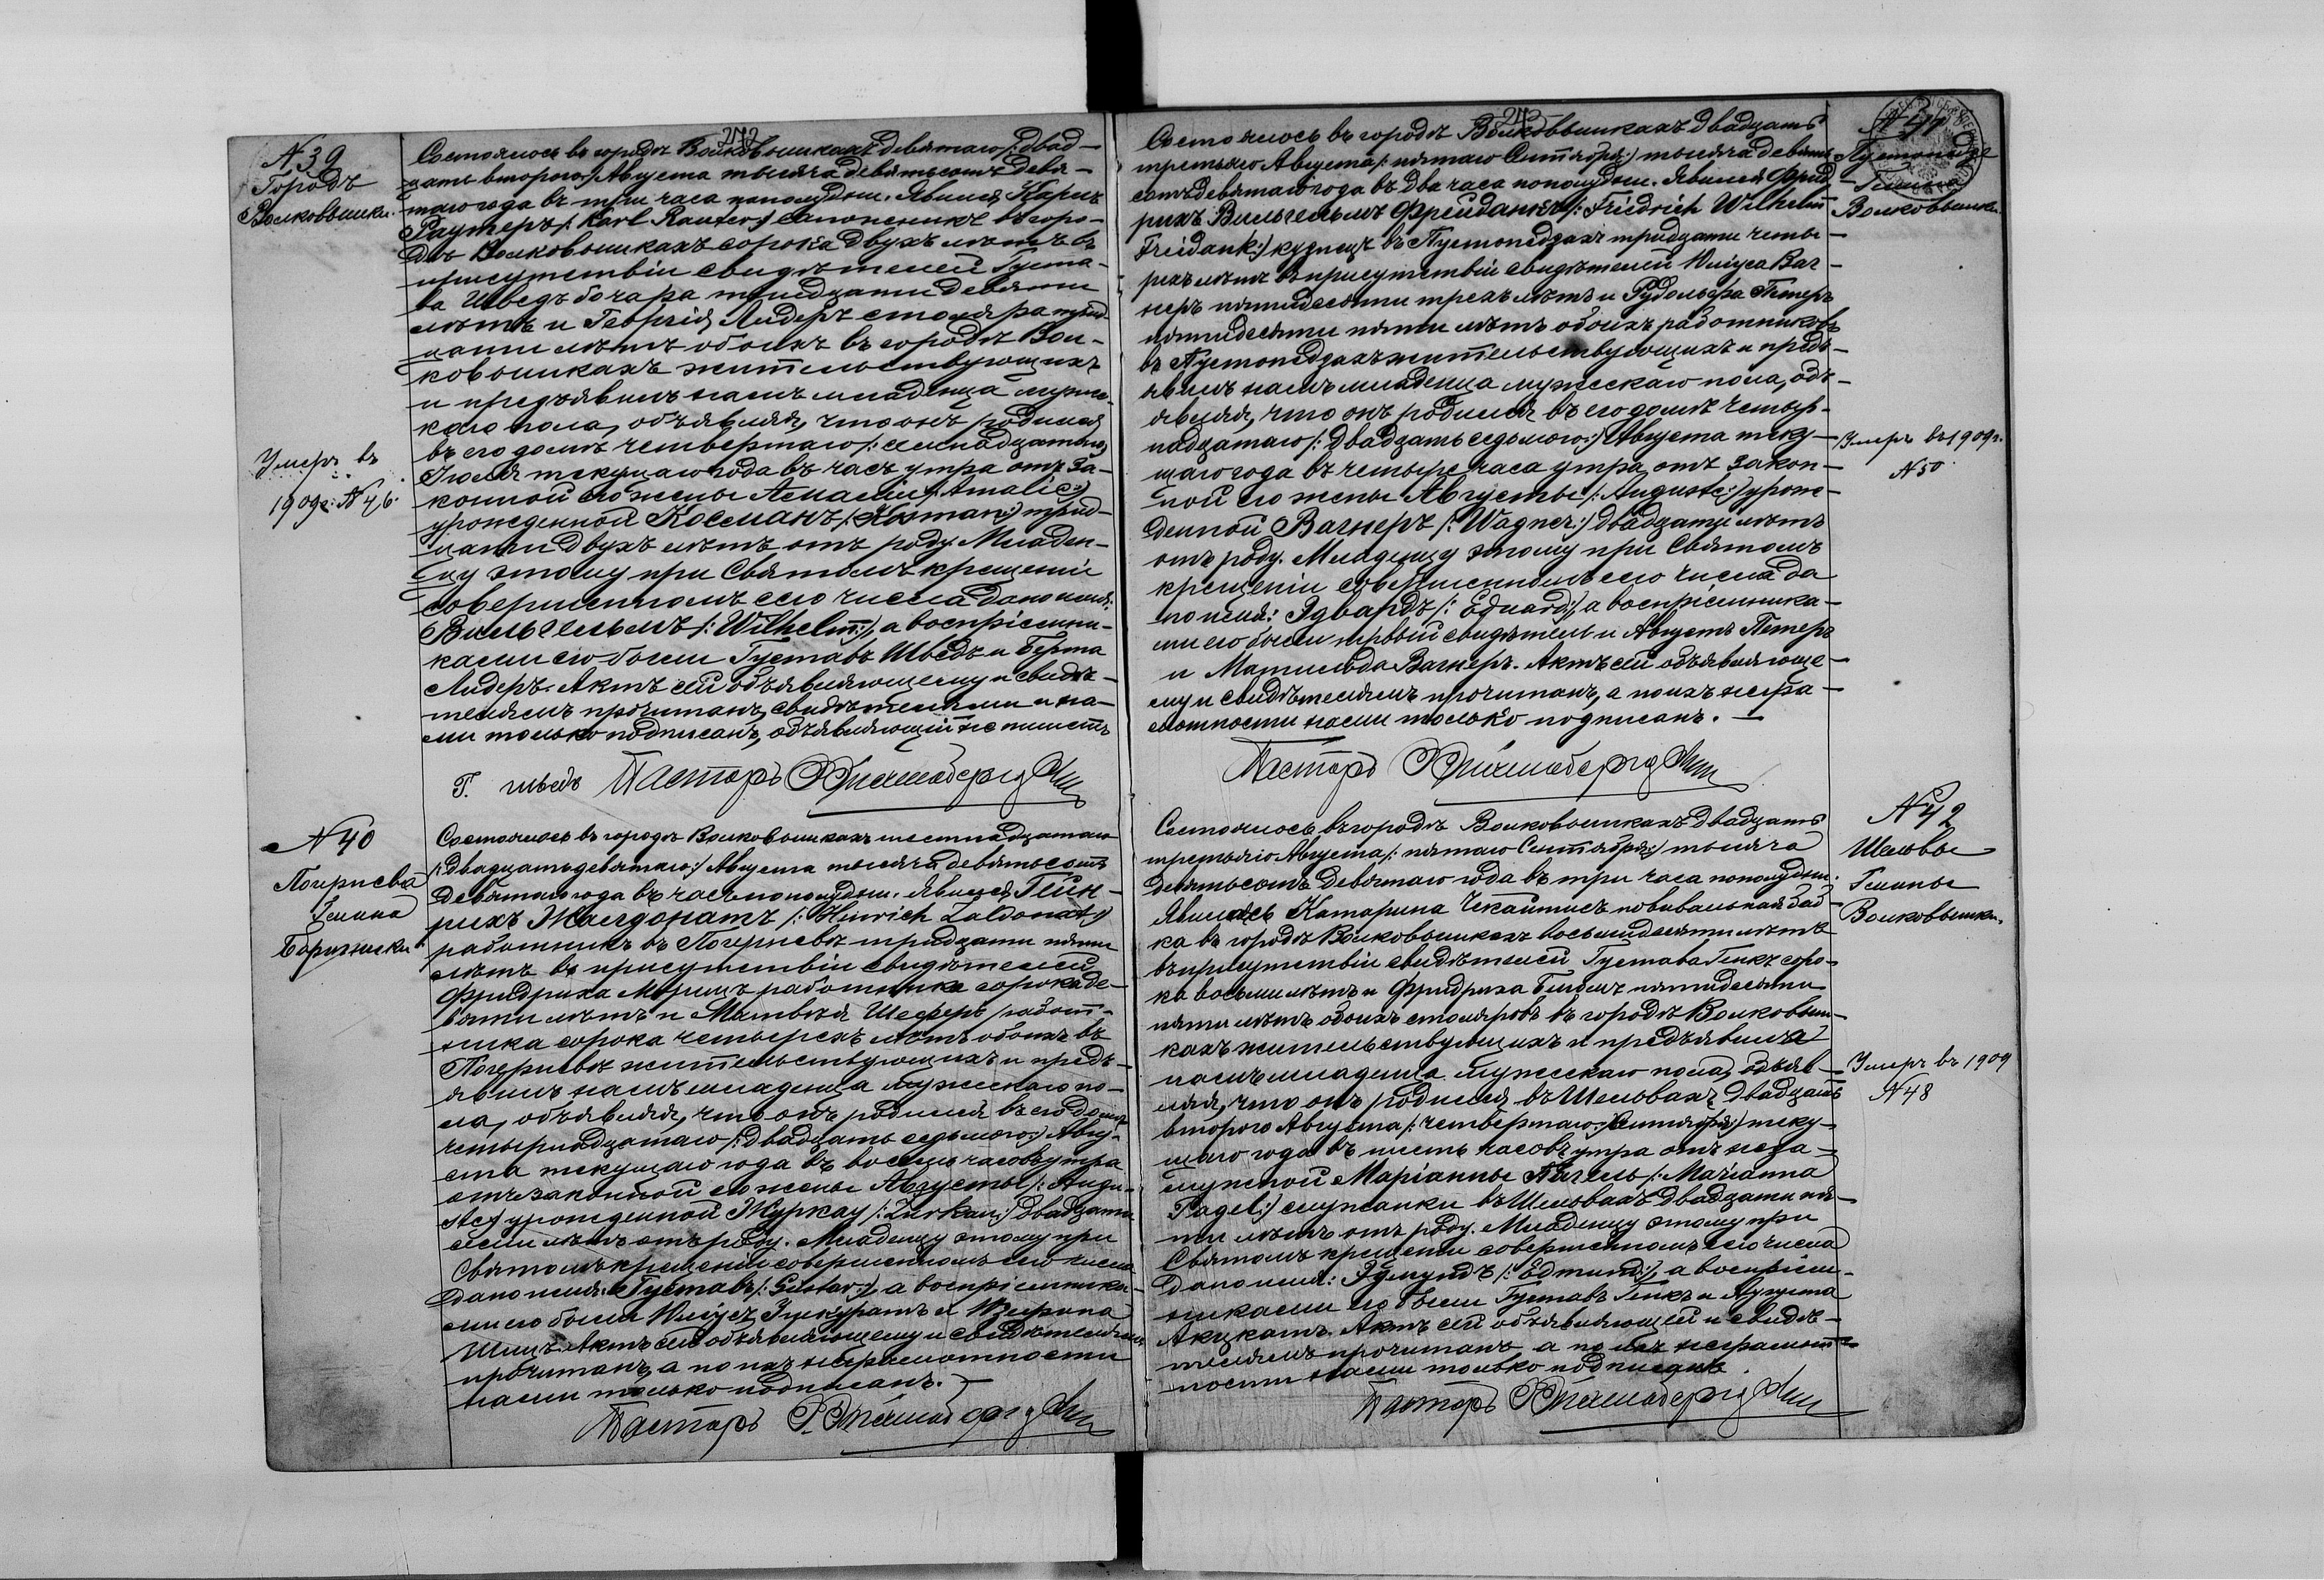 272
N 39
Городъ
Волковышки.
Состоялось въ городѣ Волковышкахъ девятаго /: двад-
цать второго :/ Августа тысяча девятьсотъ девя-
таго года въ три часа пополудни. Явился Карлъ
Раутеръ /: Karl Rauter :/ сапожникъ въ горо-
дѣ Волковышкахъ сорока двухъ лѣтъ въ
присутствіи свидѣтелей Густа-
ва Шведъ бочара тридцати девяти
лѣтъ и Георгія Лидеръ столяра трид-
цати лѣтъ обоихъ въ городѣ Вол-
ковышкахъ жительствующихъ
и предъявилъ намъ младенца мужес-
каго пола, объявляя, что онъ родился
въ его домѣ четвертаго /: семнадцатаго :/
Іюля текущаго года въ часъ утра отъ за-
конной его жены Амаліи /: Amalie :/
урожденной Косманъ /: Kosman :/ трид-
цати двухъ лѣтъ отъ роду. Младен-
цу этому при Святомъ крещеніи
совершенномъ сего числа дано имя:
Вильгельмъ /: Wilhelm :/, а воспріемни-
ками его были Густавъ Шведъ и Берта
Лидеръ. Актъ сей объявляющему и свидѣ-
телямъ прочитанъ, свидѣтелями и на-
ми только подписанъ, объявляющій не пишетъ
Г. шведъ Пасторъ
Умеръ въ
1909г. N 46.
N 40
Погернева
Гмина
Бартники
Состоялось въ городѣ Волковышкахъ шестнадцатаго
/: двадцать девятаго :/ Августа тысяча девятьсотъ
девятаго года въ часъ пополудни. Явился Гейн-
рихъ Жалдонатъ /: Heinrich Zaldonat :/
работникъ въ Погерневѣ тридцати пяти
лѣтъ въ присутствіи свидѣтелей
Фридриха работника сорока де-
вяти лѣтъ и Матвѣя Шеферъ работ-
ника сорока четырехъ лѣтъ обоихъ въ
Погерневѣ жительствующихъ и предъ-
явилъ намъ младенца мужескаго по-
ла, объявляя, что онъ родился въ его домѣ
четырнадцатаго /: двадцать седьмого :/ Авгу-
ста текущаго года въ восемь часовъ утра
отъ законной его жены Августы /: Augu-
ste :/ урожденной Журкау /: Zurkau :/ двадцати
семи лѣтъ отъ роду. Младенцу этому при
Святомъ крещеніи совершенномъ сего числа
дано имя: Густавъ /: Gustav :/, а воспріемника-
ми его были Юліусъ и
Актъ сей объявляющему и свидѣтелямъ
прочитанъ, а по ихъ неграмотности
нами только подписанъ. —
Пасторъ
272
N 41
Пустопедзе
Гмина
Волковышки
Состоялось въ городѣ Волковышкахъ двадцать
третьяго Августа /: пятаго Сентября :/ тысяча девять-
сотъ девятаго года въ два часа пополудни. Явился Фрид-
рихъ Вильгельмъ Фрейданкъ /: Friedrich Wilhelm
Freidank :/ кузнецъ въ Пустопедзахъ тридцати четы-
рехъ лѣтъ въ присутствіи свидѣтелей Юліуса Ваг-
неръ пятидесяти трехъ лѣтъ и Рудольфа Петеръ
пятидесяти пяти лѣтъ обоихъ работниковъ
въ Пустопедзахъ жительствующихъ и предъ-
явилъ намъ младенца мужескаго пола, объ-
являя, что онъ родился въ его домѣ четыр-
надцатаго /: двадцать седьмого :/ Августа теку-
щаго года въ четыре часа утра отъ закон-
ной его жены Августы /: Auguste :/ урож-
денной Вагнеръ /: Wagner :/ двадцати лѣтъ
отъ роду. Младенцу этому при Святомъ
крещеніи совершенномъ сего числа да-
но имя: Эдвардъ /: Eduard :/, а воспріемника-
ми его были первый свидѣтель и Августъ Петеръ
и Матильда Вагнеръ. Актъ сей объявляюще-
му и свидѣтелямъ прочитанъ, а по ихъ негра-
мотности нами только подписанъ. —
Пасторъ
Умеръ въ 1909г.
N 50
N 42
Шельвы
Гмины
Волковышки.
Состоялось въ городѣ Волковышкахъ двадцать
третьяго Августа /: пятаго Сентября :/ тысяча
девятьсотъ девятаго года въ три часа пополудни.
Явилась Катарина Чекайтисъ повивальная баб-
ка въ городѣ Волковышкахъ восьмидесяти лѣтъ
въ присутствіи свидѣтелей Густава Генкъ соро-
ка восьми лѣтъ и Фридриха пятидесяти
пяти лѣтъ обоихъ столяровъ въ городѣ Волковыш-
кахъ жительствующихъ и предъявила
намъ младенца мужескаго пола, объяв-
ляя, что онъ родился въ Шельвахъ двадцать
второго Августа /: четвертаго Сентября :/ теку-
щаго года въ шесть часовъ утра отъ неза-
мужной Маріанны Пагель /: Marianna
Pagel :/ служанки въ Шельвахъ двадцати пя-
ти лѣтъ отъ роду. Младенцу этому при
Святомъ крещеніи совершенномъ сего числа
дано имя: Эдмундъ /: Edmund :/, а воспріем-
никами его были Густавъ Генкъ и Августа
Актъ сей объявляющей и свидѣ-
телямъ прочитанъ, а по ихъ неграмот-
ности нами только подписанъ.
Пасторъ
Умеръ въ 1909
N 48